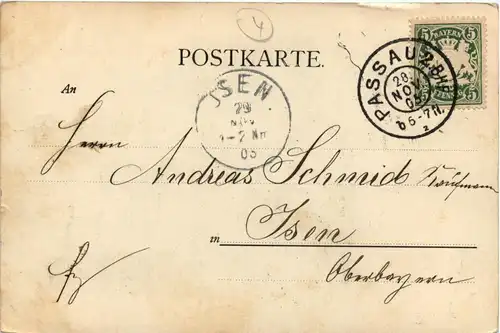 4
5 BAYERN 5
POSTKARTE.
PASSAU 2. B.H.F.
28
NOV
03
6-7 N.
2
ISEN
29
NOV
1-2 Nm
03
An
Herrn
Andreas Schmid Kaufmann
in Isen
Oberbayern